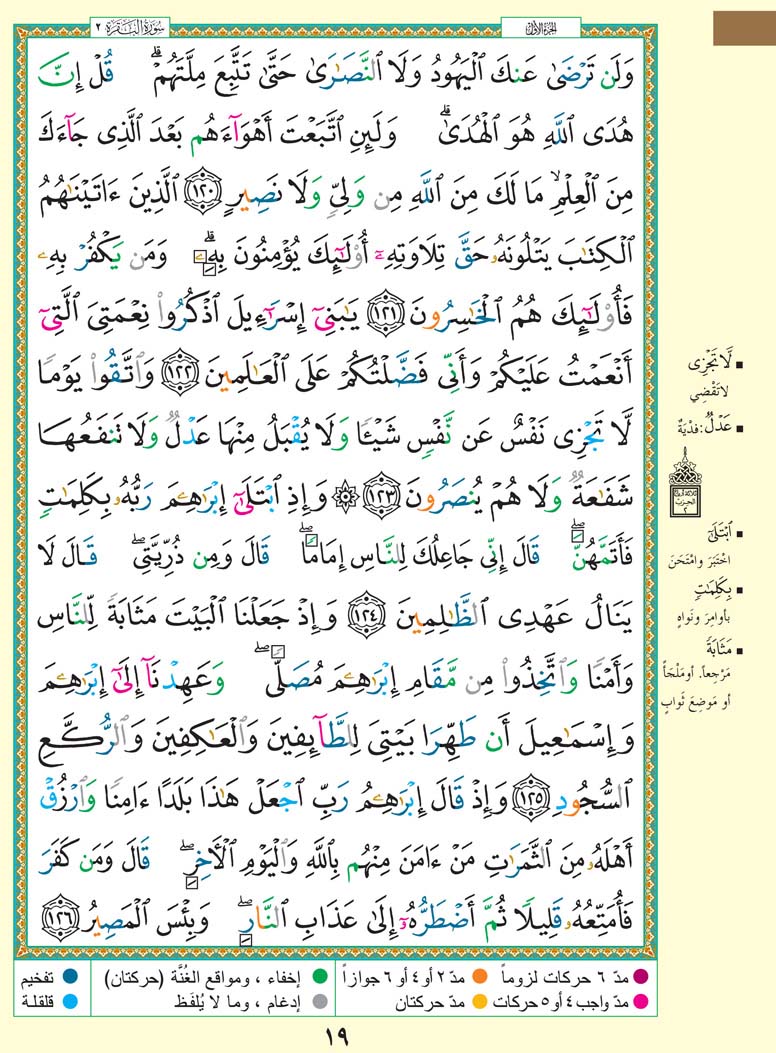 سُورَةُ البَقَرَة ٢
الجُزءُ الأوَّلُ
وَلَن تَرْضَىٰ عَنكَ ٱلْيَهُودُ وَلَا ٱلنَّصَٰرَىٰ حَتَّىٰ تَتَّبِعَ مِلَّتَهُمْ ۗ قُلْ إِنَّ
هُدَى ٱللَّهِ هُوَ ٱلْهُدَىٰ ۗ وَلَئِنِ ٱتَّبَعْتَ أَهْوَآءَهُم بَعْدَ ٱلَّذِى جَآءَكَ
مِنَ ٱلْعِلْمِ ۙ مَا لَكَ مِنَ ٱللَّهِ مِن وَلِىٍّ وَلَا نَصِيرٍ ١٢٠ ٱلَّذِينَ ءَاتَيْنَٰهُمُ
ٱلْكِتَٰبَ يَتْلُونَهُۥ حَقَّ تِلَاوَتِهِۦٓ أُو۟لَٰٓئِكَ يُؤْمِنُونَ بِهِۦ ۗ وَمَن يَكْفُرْ بِهِۦ
فَأُو۟لَٰٓئِكَ هُمُ ٱلْخَٰسِرُونَ ١٢١ يَٰبَنِىٓ إِسْرَٰٓءِيلَ ٱذْكُرُوا۟ نِعْمَتِىَ ٱلَّتِىٓ
أَنْعَمْتُ عَلَيْكُمْ وَأَنِّى فَضَّلْتُكُمْ عَلَى ٱلْعَٰلَمِينَ ١٢٢ وَٱتَّقُوا۟ يَوْمًا
لَّا تَجْزِى نَفْسٌ عَن نَّفْسٍ شَيْـًٔا وَلَا يُقْبَلُ مِنْهَا عَدْلٌ وَلَا تَنفَعُهَا
شَفَٰعَةٌ وَلَا هُمْ يُنصَرُونَ ١٢٣ ۞ وَإِذِ ٱبْتَلَىٰٓ إِبْرَٰهِـۧمَ رَبُّهُۥ بِكَلِمَٰتٍ
فَأَتَمَّهُنَّ ۖ قَالَ إِنِّى جَاعِلُكَ لِلنَّاسِ إِمَامًا ۖ قَالَ وَمِن ذُرِّيَّتِى ۖ قَالَ لَا
يَنَالُ عَهْدِى ٱلظَّٰلِمِينَ ١٢٤ وَإِذْ جَعَلْنَا ٱلْبَيْتَ مَثَابَةً لِّلنَّاسِ
وَأَمْنًا وَٱتَّخِذُوا۟ مِن مَّقَامِ إِبْرَٰهِـۧمَ مُصَلًّى ۖ وَعَهِدْنَآ إِلَىٰٓ إِبْرَٰهِـۧمَ
وَإِسْمَٰعِيلَ أَن طَهِّرَا بَيْتِىَ لِلطَّآئِفِينَ وَٱلْعَٰكِفِينَ وَٱلرُّكَّعِ
ٱلسُّجُودِ ١٢٥ وَإِذْ قَالَ إِبْرَٰهِـۧمُ رَبِّ ٱجْعَلْ هَٰذَا بَلَدًا ءَامِنًا وَٱرْزُقْ
أَهْلَهُۥ مِنَ ٱلثَّمَرَٰتِ مَنْ ءَامَنَ مِنْهُم بِٱللَّهِ وَٱلْيَوْمِ ٱلْـَٔاخِرِ ۖ قَالَ وَمَن كَفَرَ
فَأُمَتِّعُهُۥ قَلِيلًا ثُمَّ أَضْطَرُّهُۥٓ إِلَىٰ عَذَابِ ٱلنَّارِ ۖ وَبِئْسَ ٱلْمَصِيرُ ١٢٦
▪ لَّا تَجْزِى
لا تَقْضِي
▪ عَدْلٌ: فِدْيَةٌ
ثلاثة أرباع
الحزب
٢
▪ ٱبْتَلَىٰٓ
اخْتَبَرَ وامْتَحَنَ
▪ بِكَلِمَٰتٍ
بأوامِرَ ونَواهٍ
▪ مَثَابَةً
مَرْجِعاً. أو مَلْجَأً
أو مَوضِعَ ثَوابٍ
مدّ ٦ حركات لزوماً
مدّ ٢ أو ٤ أو ٦ جوازاً
إخفاء ، ومواقع الغُنَّة (حركتان)
تفخيم
مدّ واجب ٤ أو ٥ حركات
مدّ حركتان
إدغام ، وما لا يُلفَظ
قلقلة
١٩